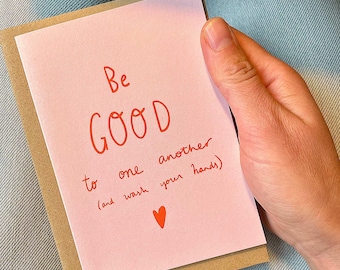 Be
GOOD
to one another
(and wash your hands)